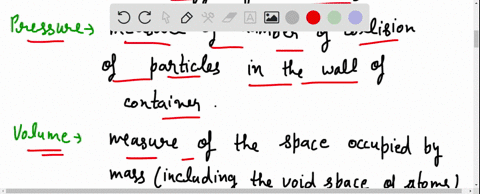 Pressure → measure of number of collision
of particles in the wall of
container.
Volume → measure of the space occupied by
mass (including the void space of atoms)